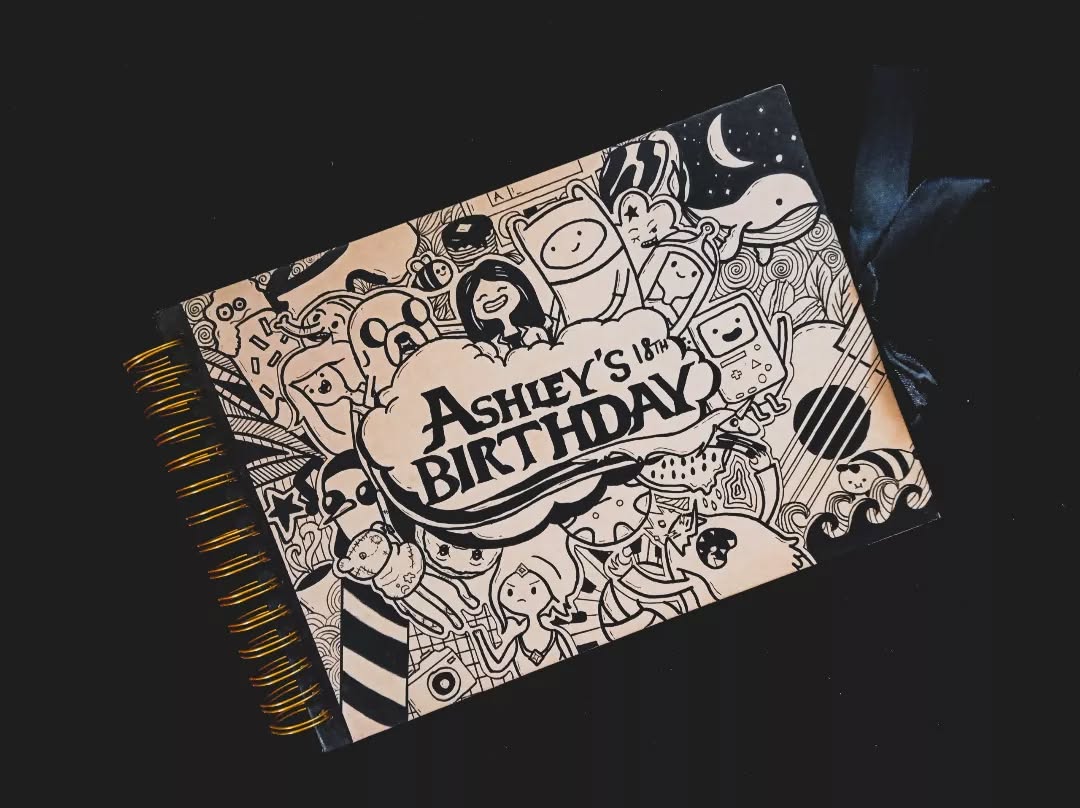 ASHLEY'S 18TH
BIRTHDAY